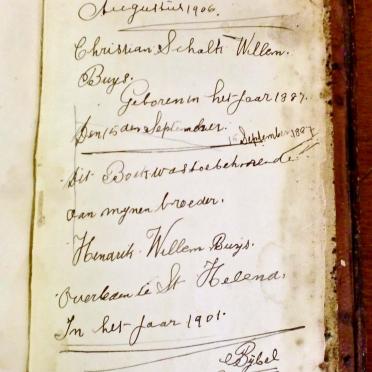 Augustus 1906.
Christian Schalk Willem.
Buys.
Geboren in het Jaar 1887.
Den 15 den September.
15 September 1887
Dit Boek was toebehorende
aan mynen broeder.
Hendrik Willem Buys.
Overleden te St Helena.
In het Jaar 1901.
Bybel